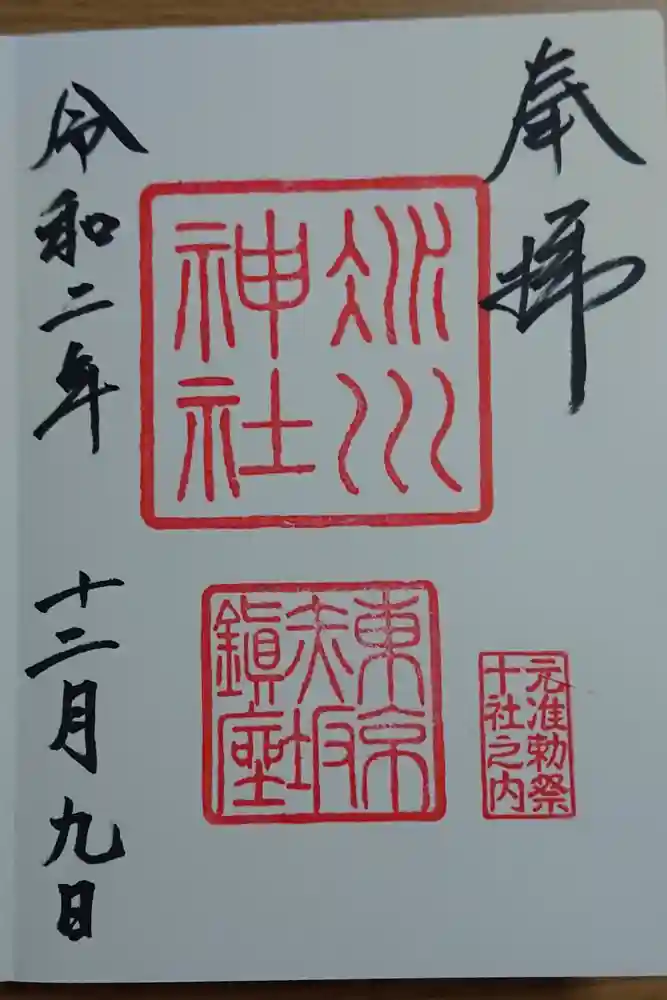 奉拝
氷川
神社
東京
赤坂
鎮座
元准勅祭
十社之内
令和二年 十二月九日